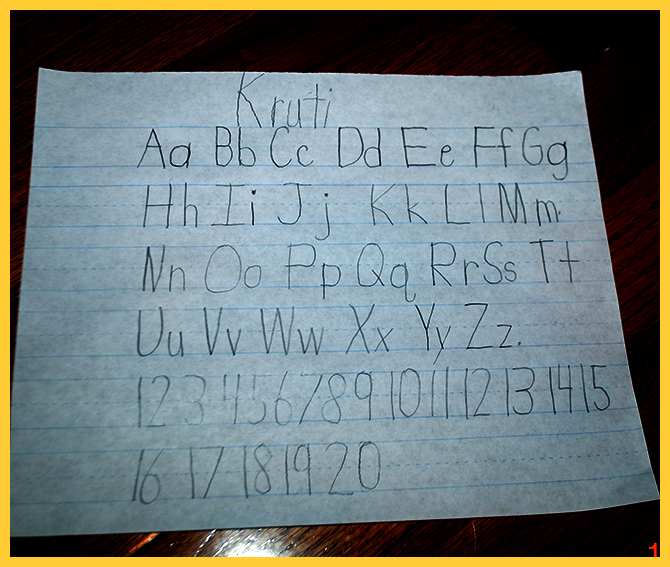 Kruti
Aa Bb Cc Dd Ee Ff Gg
Hh Ii Jj Kk Ll Mm
Nn Oo Pp Qq Rr Ss Tt
Uu Vv Ww Xx Yy Zz.
1 2 3 4 5 6 7 8 9 10 11 12 13 14 15
16 17 18 19 20
1